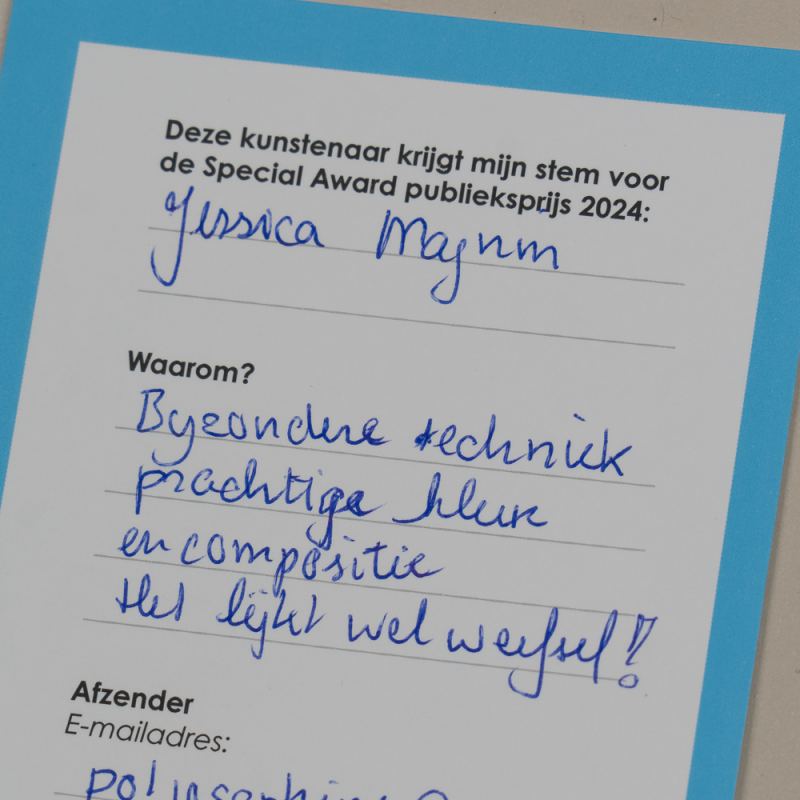 Deze kunstenaar krijgt mijn stem voor
de Special Award publieksprijs 2024:
Jessica
Waarom?
Byzondere techniek
prachtige kleur
en compositie
Het lijkt wel weefsel!!
Afzender
E-mailadres: